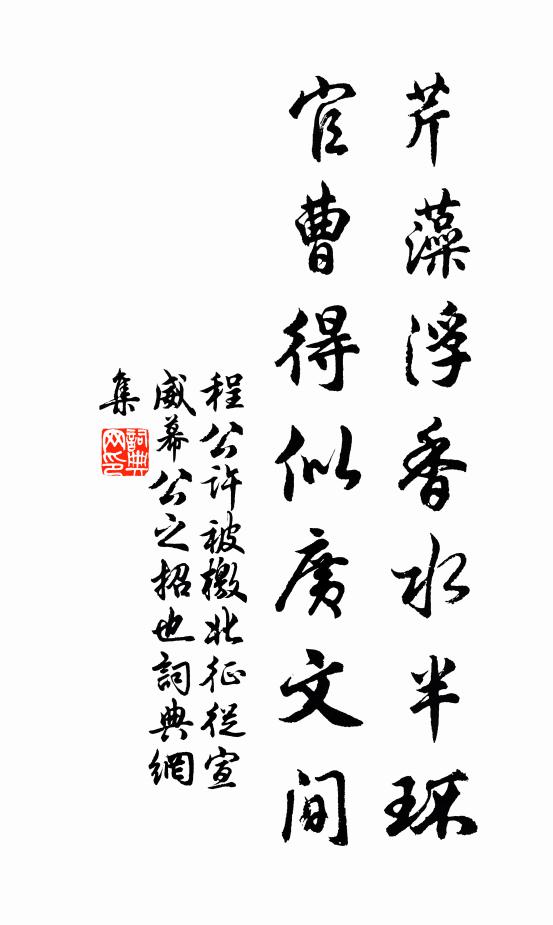 芹藻浮香水半环
官曹得似廣文間
程公许被檄北征從宣
威幕公之招也詞典網
集
詞典網印